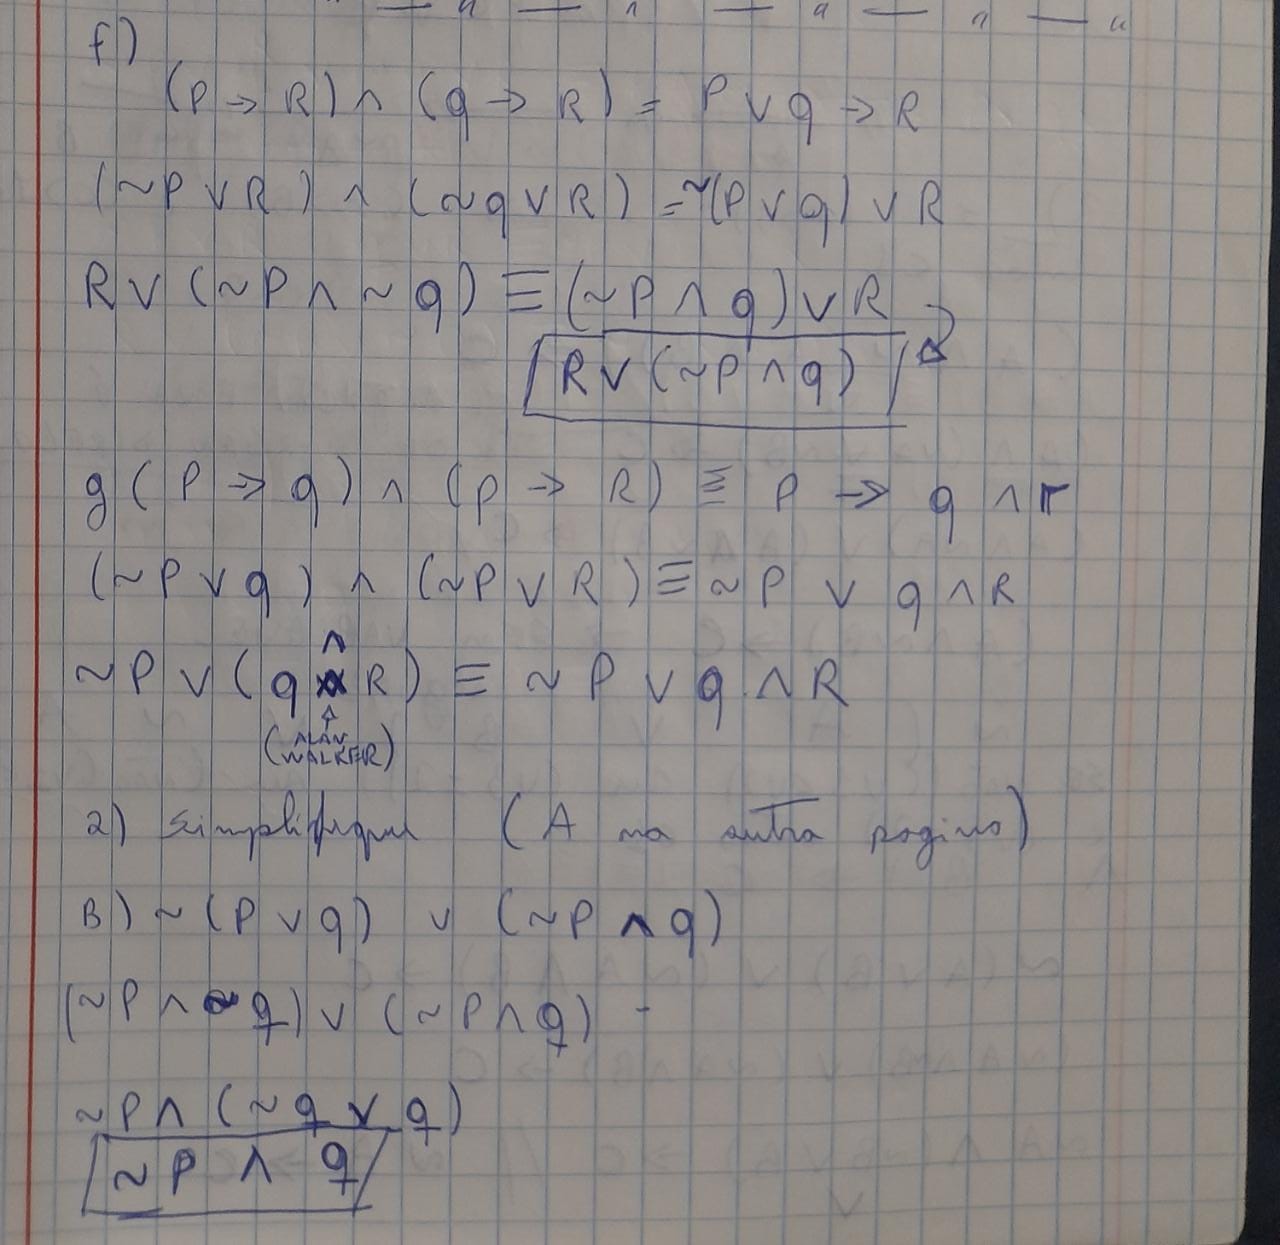 f)
(P → R) ∧ (q → R) = P ∨ q → R
(~P ∨ R) ∧ (~q ∨ R) = ~(P ∨ q) ∨ R
R ∨ (~P ∧ ~q) ≡ (~P ∧ q) ∨ R
R ∨ (~P ∧ q)
g (P → q) ∧ (P → R) ≡ P → q ∧ r
(~P ∨ q) ∧ (~P ∨ R) ≡ ~P ∨ q ∧ R
∧
~P ∨ (q R) ≡ ~P ∨ q ∧ R
(ALAN
WALKER)
2) Simplifique (A na outra pagina)
B) ~(P ∨ q) ∨ (~P ∧ q)
(~P ∧ ~q) ∨ (~P ∧ q) -
~P ∧ (~q ∨ q)
~P ∧ q